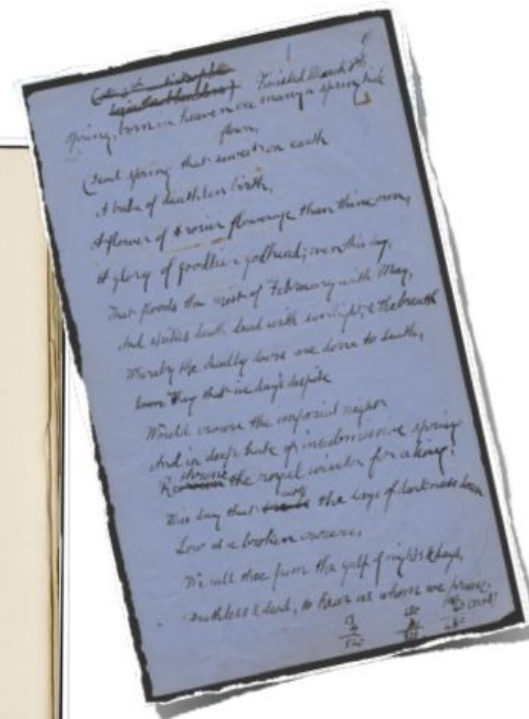 Finished March 8th.
Spring, born in heaven ere many a springtide
flown,
Dead spring that sawest on earth
A babe of deathless birth,
A flower of rosier flowerage than thine own,
A glory of goodlier godhead; even this day,
That floods the mist of February with May,
And strikes death dead with sunlight, & the breath
Whereby the deadly doers are done to death,
They that in day's despite
Would crown the imperial night
And in deep hate of insubmissive spring
throne
Re the royal winter for a king,
This day that the days of darkness down
Low as a broken crown,
We call thee from the gulf of nights & days,
Deathless & dead, to hear us whom we praise.